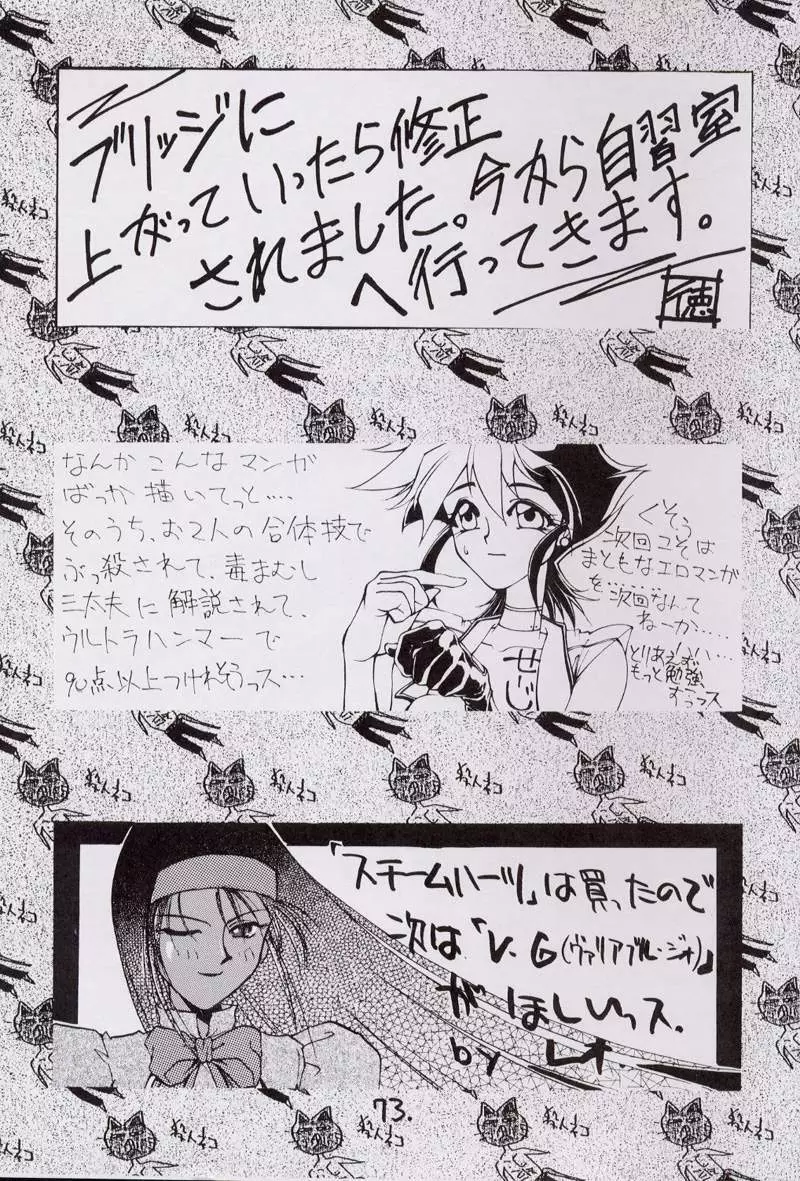 ブリッジに
上がっていったら修正
されました。今から自習室
へ行ってきます。
徳
なんかこんなマンガ
ばっか描いてっと‥‥
そのうち、お2人の合体技で
ぶっ殺されて、毒まむし
三太夫に解説されて、
ウルトラハンマーで
90点以上つけれそうっス…
くそう
次回こそは
まともなエロマンガ
を‥‥‥
次回なんて
ねーか‥‥‥
とりあえず‥‥
もっと勉強
すっっス
せーじ
「スチームハーツ」は買ったので
次は「V.G(ヴァリアブル・ジオ)」
がほしいっス。
by レオ.
73.
殺人ネコ